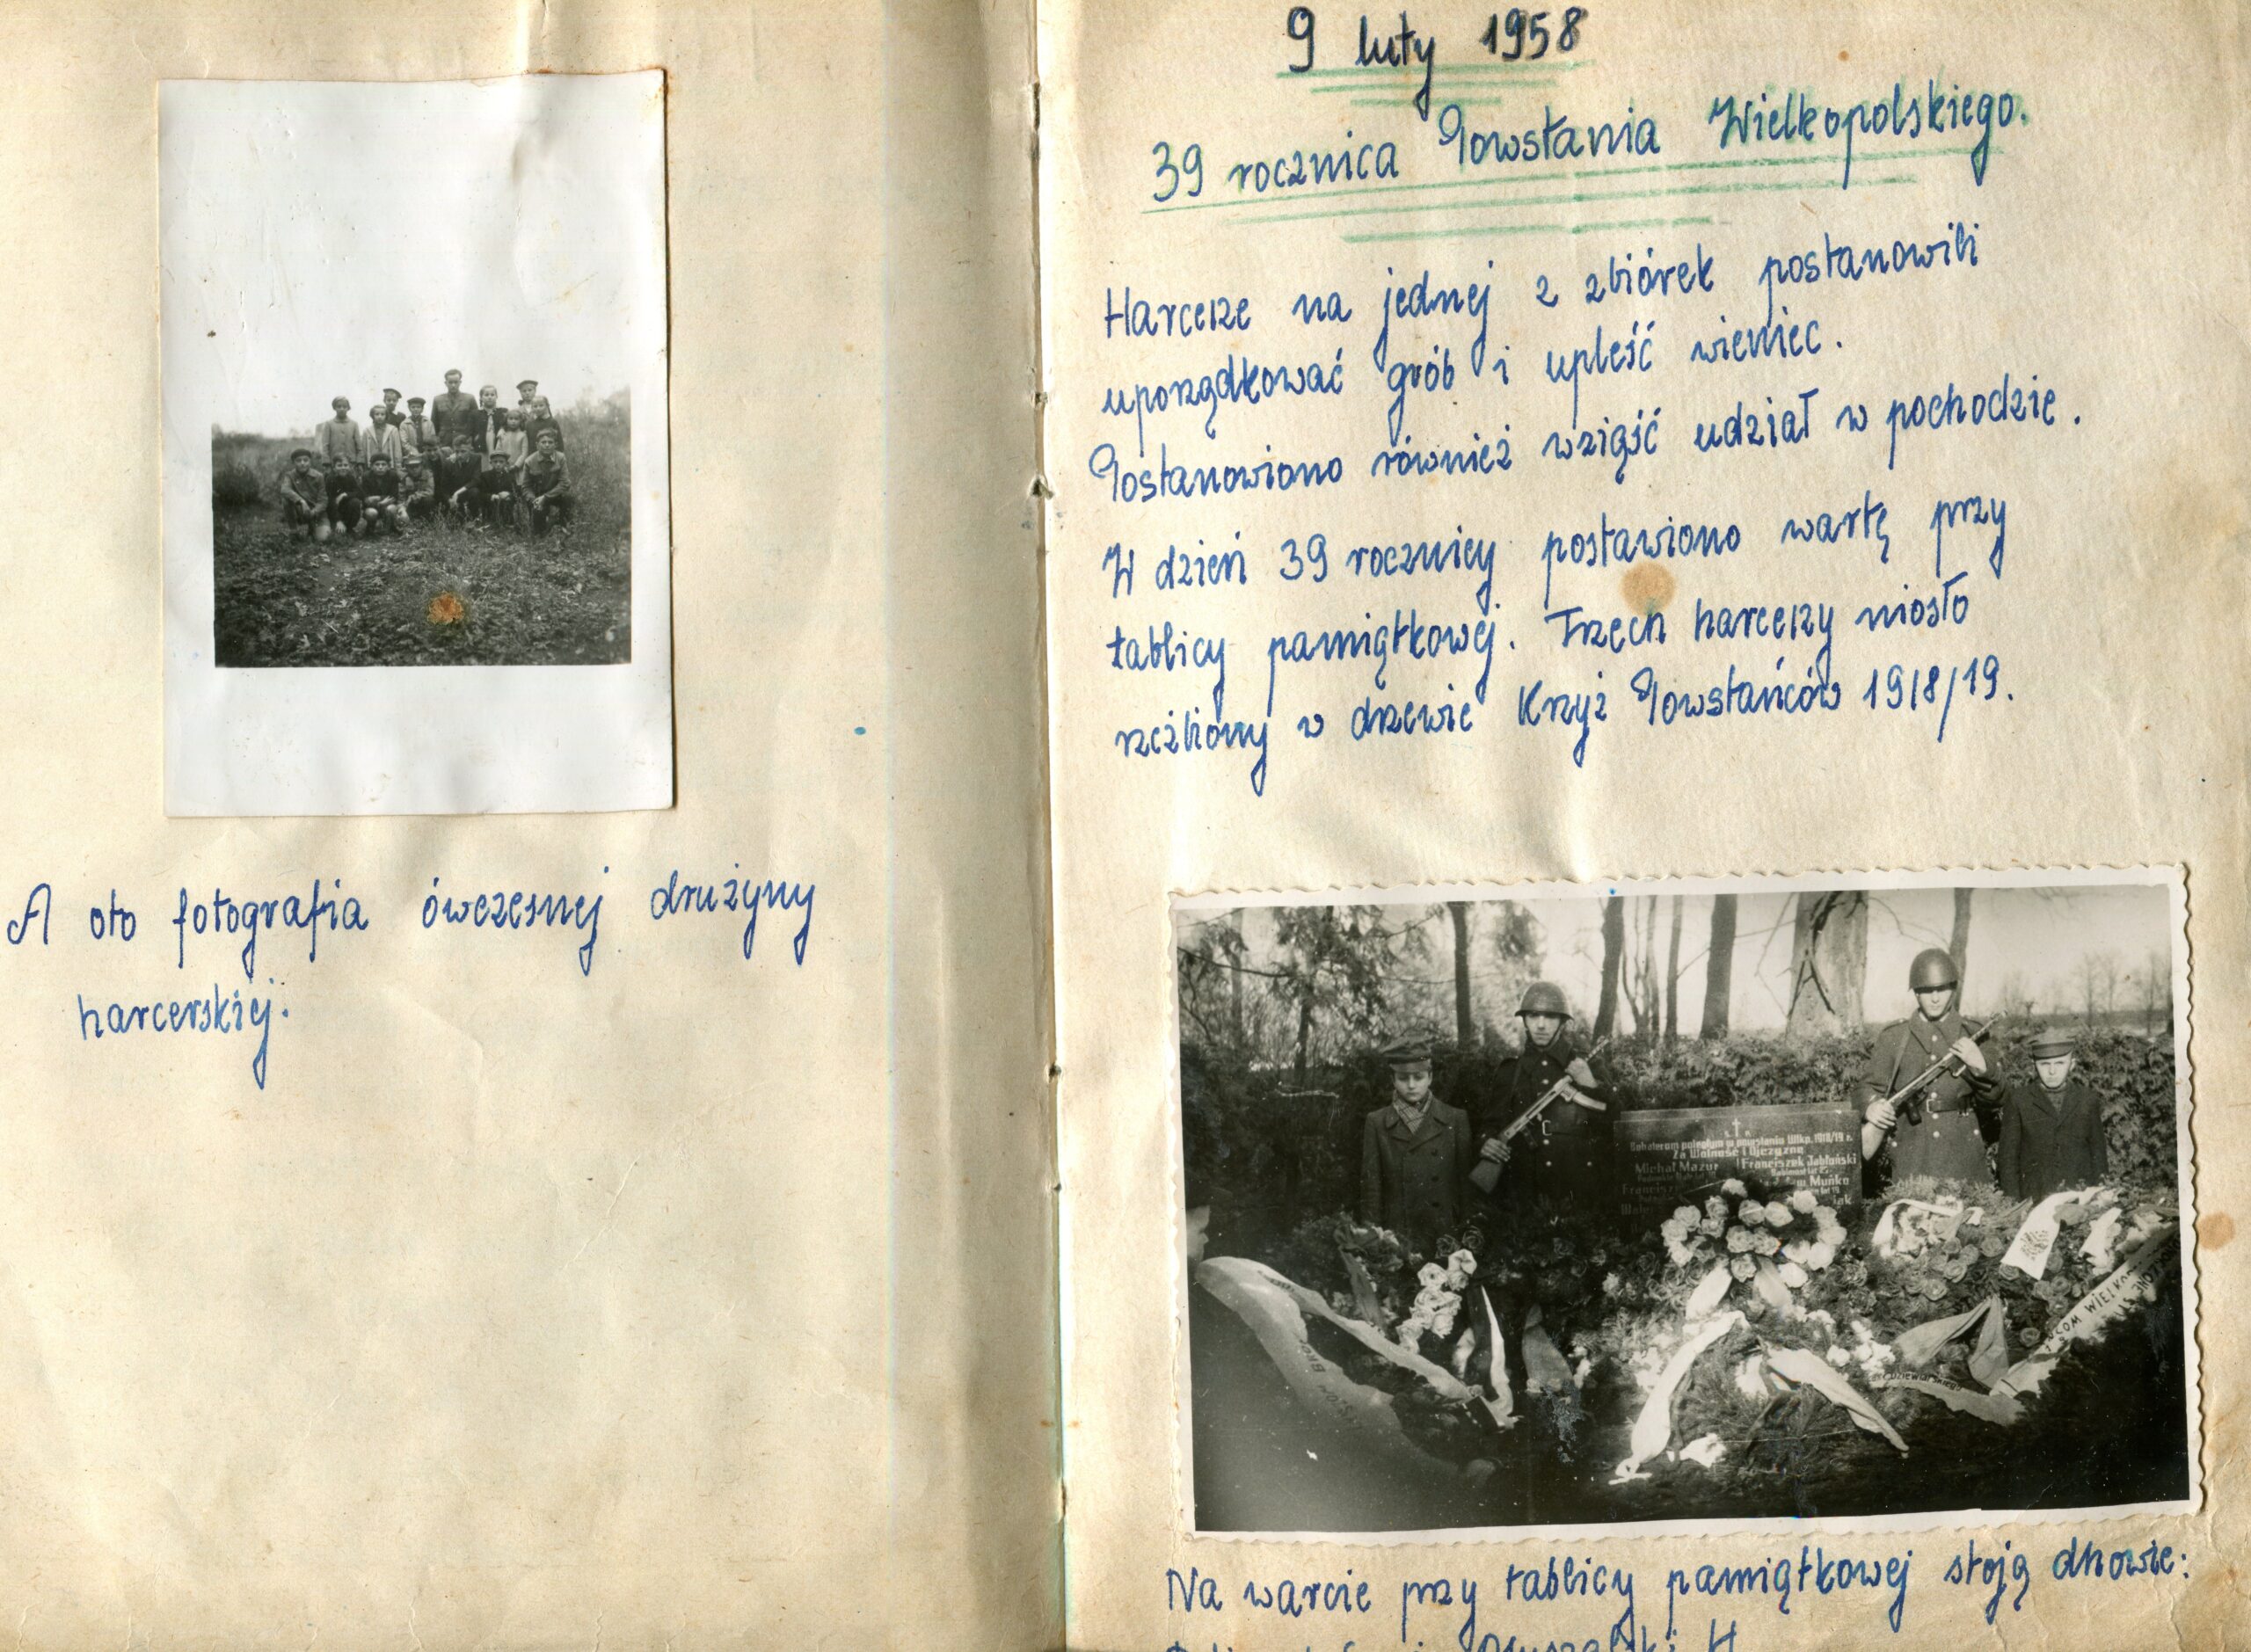 A oto fotografia ówczesnej drużyny
harcerskiej.
9 luty 1958
39 rocznica Powstania Wielkopolskiego.
Harcerze na jednej z zbiórek postanowili
uporządkować grób i upleść wieniec.
Postanowiono również wziąść udział w pochodzie.
W dzień 39 rocznicy postawiono wartę przy
tablicy pamiątkowej. Trzech harcerzy niosło
rzeźbiony w drzewie Krzyż Powstańców 1918/19.
Bohaterom poległym w powstaniu Wlkp. 1918/19 r.
Za Wolność i Ojczyznę
Michał Mazur Franciszek Jabłoński
Muńko
WIELKO
Na warcie przy tablicy pamiątkowej stoją dhowie: